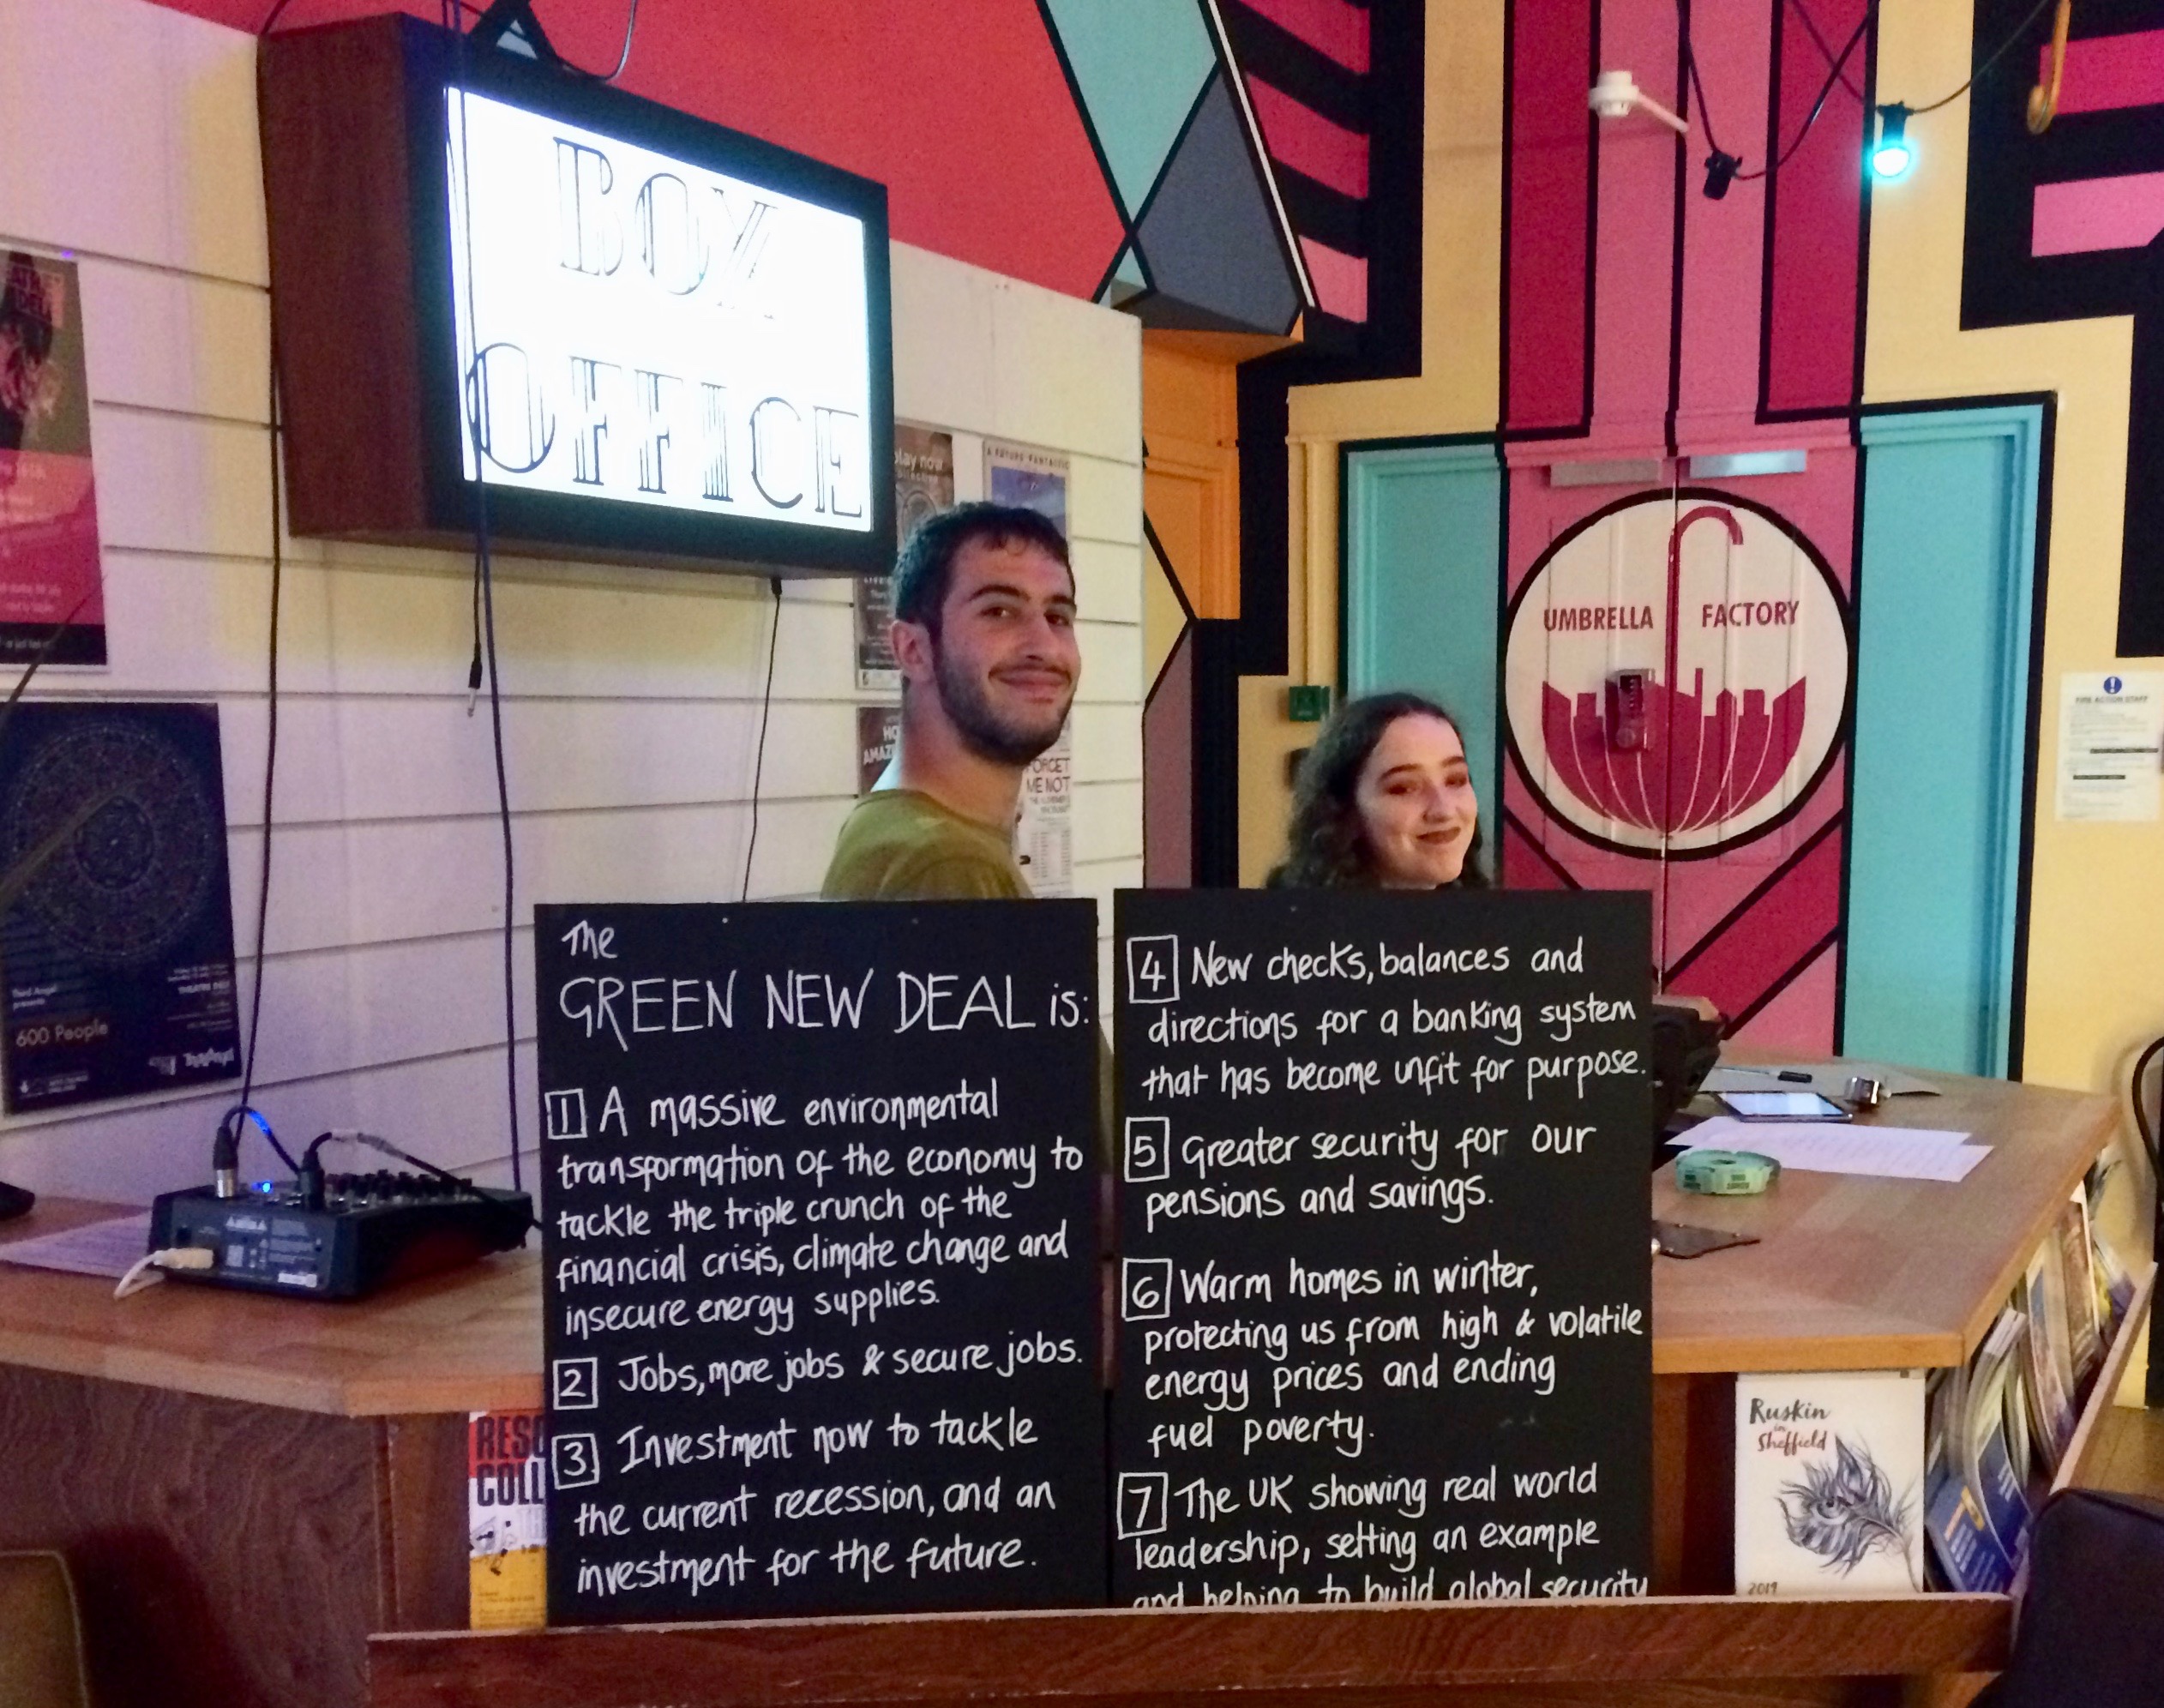 BOX
OFFICE
play now
A FUTURE FANTASTIC
FORGET
ME NOT
UMBRELLA FACTORY
FIRE ACTION STAFF
Third Angel
presents
600 People
The
GREEN NEW DEAL is:
1 A massive environmental
transformation of the economy to
tackle the triple crunch of the
financial crisis, climate change and
insecure energy supplies.
2 Jobs, more jobs & secure jobs.
3 Investment now to tackle
the current recession, and an
investment for the future.
4 New checks, balances and
directions for a banking system
that has become unfit for purpose.
5 Greater security for our
pensions and savings.
6 Warm homes in winter,
protecting us from high & volatile
energy prices and ending
fuel poverty.
7 The UK showing real world
leadership, setting an example
and helping to build global security
Ruskin
in
Sheffield
2019